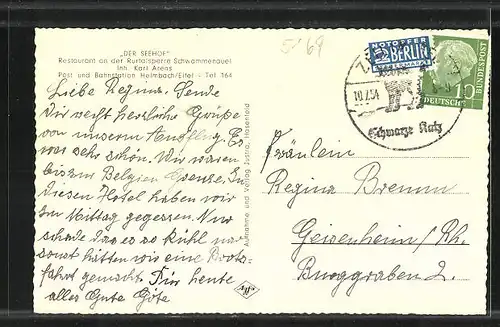 „DER SEEHOF"
Restaurant an der Rurtalsperre Schwammenauel
Inh. Karl Arens
Post und Bahnstation Heimbach/Eifel - Tel 164
Liebe Regina. Sende
Dir recht herzliche Grüße
von unserem Ausflug. Es
war sehr schön. Wir waren
bis zur Belgien Grenze. In
diesen Hotel haben wir
zu Mittag gegessen. Nur
schade das es so kühl war
sonst hätten wir eine Boots-
fahrt gemacht. Für heute
alles Gute Göte
Aufnahme und Verlag Justra, Hasenfeld
5.- 69
NOTOPFER
2 BERLIN
STEUERMARKE
10.7.54
Schwarze Katz
DEUTSCHE
BUNDESPOST
10
Fräulein
Regina Bremm
Geisenheim/Rh.
Burggraben 2.